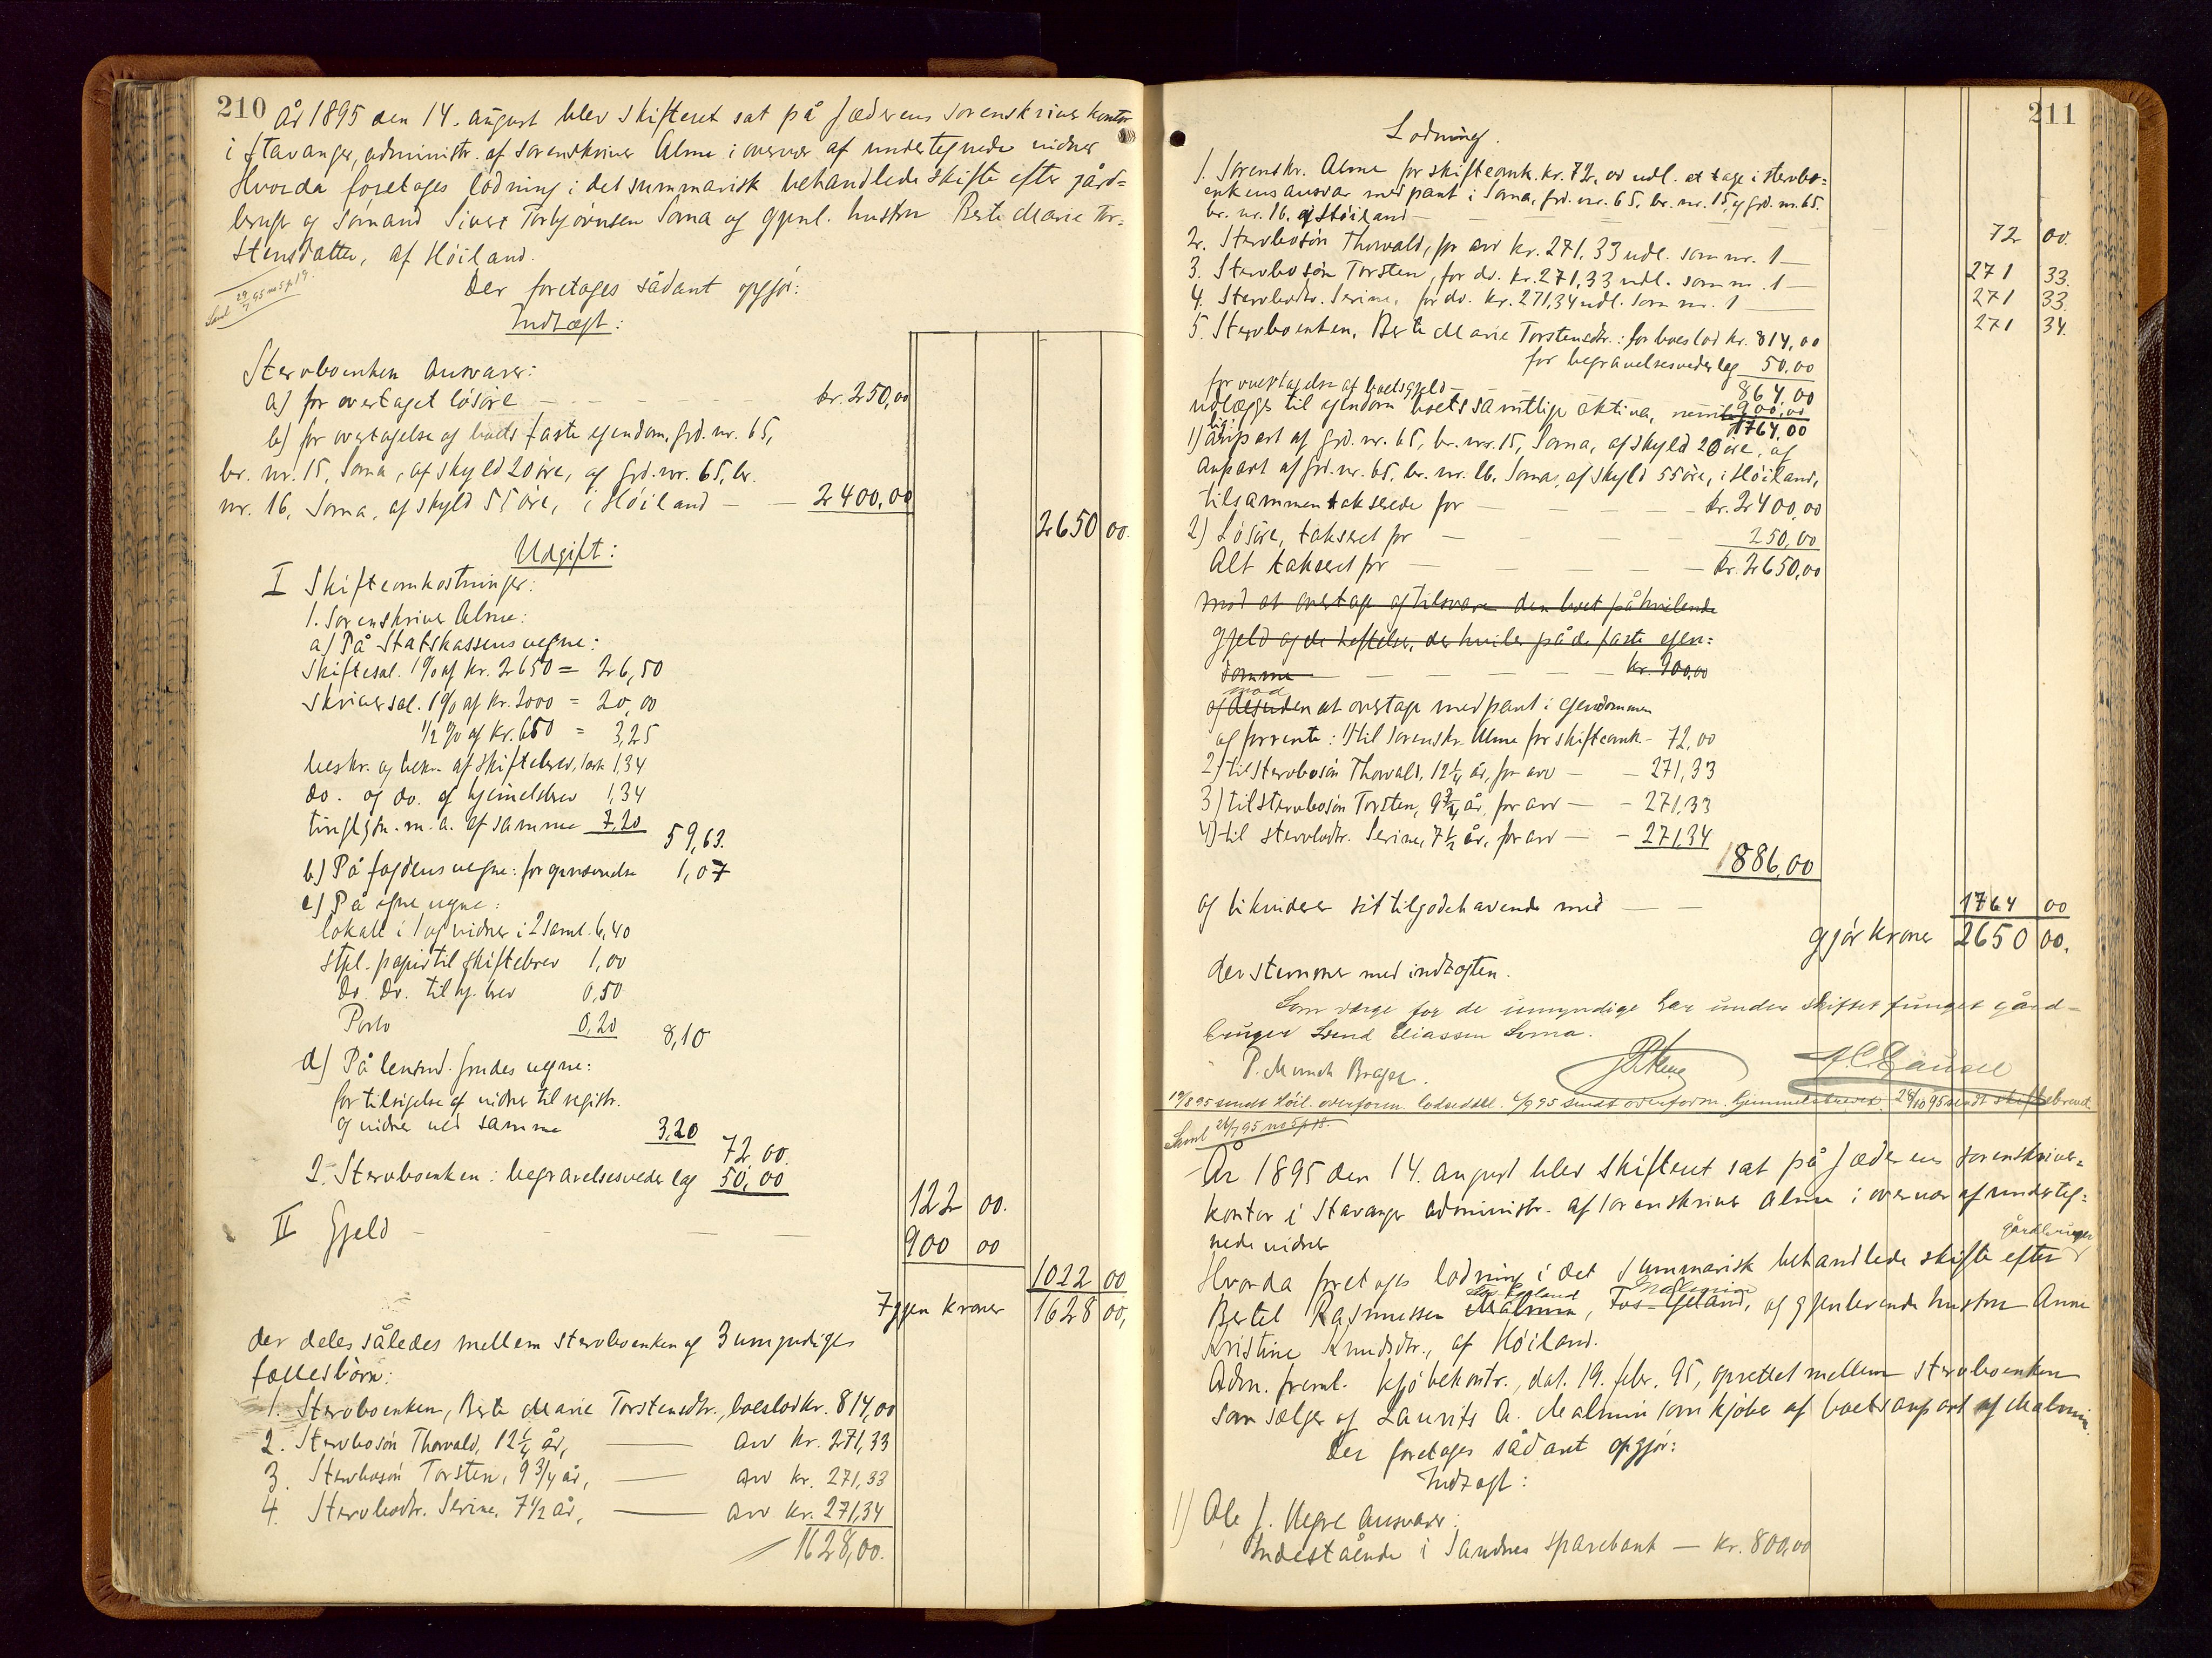 210
År 1895 den 14. august blev skifteret sat på Jæderens sorenskriverkontor
i Stavanger, administr. af sorenskriver Alme i overvær af undertegnede vidner
Hvorda foretages lodning i det summarisk behandlede skifte efter gård=
bruger og sømand Sivert Torbjørnsen Soma og gjenl. hustru Berte Marie Tor=
stensdatter, af Höiland.
Saml 29/7 95 no 5 p 19.
Der foretages sådant opgjør:
Indtægt:
Stervboenken Ansvarer:
a) for overtaget lösöre — — — — kr. 250,00
b) for overtagelse af boets faste ejendom, grd. nr. 65,
br. nr. 15, Soma, af skyld 20 öre, og grd. nr. 65, br.
nr. 16, Soma, af skyld 55 öre, i Höiland — — 2400,00
2650 00.
Udgift:
I Skifteomkostninger:
1. Sorenskriver Alme:
a) På Statskassens vegne:
Skiftesal. 1% af kr. 2650 = 26,50
Skriversal. 1% af kr. 2000 = 20,00
1/2 % af kr. 650 = 3,25
beskr. og bekr. af skiftebrev, 1 ark 1,34
do. og do. af hjemmelsbrev 1,34
tinglysn. m. a. af samme 7,20 59,63.
b) På fogdens vegne: for gjensendelse 1,07
c) På egne vegne:
lokale i 1 og vidner i 2 saml. 6,40
stpl. papir til skiftebrev 1,00
do. do. til hj. brev 0,50
Porto 0,20 8,10
d) På lensmd. Grudes vegne:
for tilsigelse af vidner til registr.
og vidner ved samme 3,20
72,00.
2. Stervboenken: begravelsesvederlag 50,00
122 00.
II Gjeld — — — — 900 00
1022 00
Igjen kroner 1628 00,
der deles således mellem stervboenken og 3 umyndige
fællesbörn:
1. Stervboenken, Berte Marie Torstensdtr., boeslod kr. 814,00
2. Stervbosön Thorvald, 12 1/4 år, — arv kr. 271,33
3. Stervbosön Torsten, 9 3/4 år, — arv kr. 271,33
4. Stervbodtr. Serine, 7 1/2 år, — arv kr. 271,34
1628,00.
211
Lodning.
1. Sorenskr. Alme for skifteomk. kr. 72, er udl. at tage i stervbo=
enkens ansvar med pant i Soma, grd. nr. 65, br. nr. 15, og grd. nr. 65.
br. nr. 16, af Höiland — — — — 72 00.
2. Stervbosön Thorvald, for arv kr. 271,33 udl. som nr. 1 — 271 33.
3. Stervbosön Torsten, for do. kr. 271,33 udl. som nr. 1 — 271 33.
4. Stervbodtr. Serine, for do. kr. 271,34 udl. som nr. 1 — 271 34.
5. Stervboenken, Berte Marie Torstensdtr.: for boeslod kr. 814,00
for begravelsesvederlag 50,00
864,00
for overtagelse af boets gjeld — — — 900,00
udlægges til ejendom boets samtlige aktiva, nemlig: 1764,00
1) Anpart af grd. nr. 65, br. nr. 15, Soma, af skyld 20 öre, og
anpart af grd. nr. 65, br. nr. 16, Soma, af skyld 55 öre, i Höiland,
tilsammen takserede for — — — — kr. 2400,00
2) Lösöre, takseret for — — — — 250,00
Alt takseret for — — — — kr. 2650,00
mod at overtage og tilsvare den boet påhvilende
gjeld og de heftelser, der hviler på de faste ejen=
domme — — — — kr. 900,00
mod
og desuden at overtage med pant i ejendommen
og forrente: 1) til sorenskr. Alme for skifteomk. - 72,00
2) til stervbosön Thorvald, 12 1/4 år, for arv — - 271,33
3) til stervbosön Torsten, 9 3/4 år, for arv — - 271,33
4) til stervbodtr. Serine, 7 1/2 år, for arv — - 271,34
1886,00
og likviderer sit tilgodehavende med — — 1764 00
gjör kroner 2650 00.
der stemmer med indtægten.
Som værge for de umyndige har under skiftet fungeret gård-
bruger Svend Eliassen Soma.
P. Munch Brager.
19/8 95 sendt Höil. overform. lodseddel. 6/9 95 sendt overform. hjemmelsbrevet. 28/10 95 sendt skiftebrevet
Saml 26/7 95 no 5 p 18.
År 1895 den 14. august blev skifteret sat på Jæderens sorenskriver=
kontor i Stavanger administr. af sorenskriver Alme i overvær af underteg=
nede vidner
Hvorda foretages lodning i det summarisk behandlede skifte efter gårdbruger
Bertel Rasmussen Malmin, Fos-Geland, og gjenlevende hustru Anne
Kristine Knudsdtr., af Höiland.
Adm. freml. kjöbekontr., dat. 19. febr. 95, oprettet mellem stervboenken
som sælger og Laurits A. Malmin som kjöber af boets anpart af Malmin.
Der foretages sådant opgjör:
Indtægt:
1) Ole J. Hegre Ansvarer:
Indestående i Sandnes sparebank — kr. 800,00